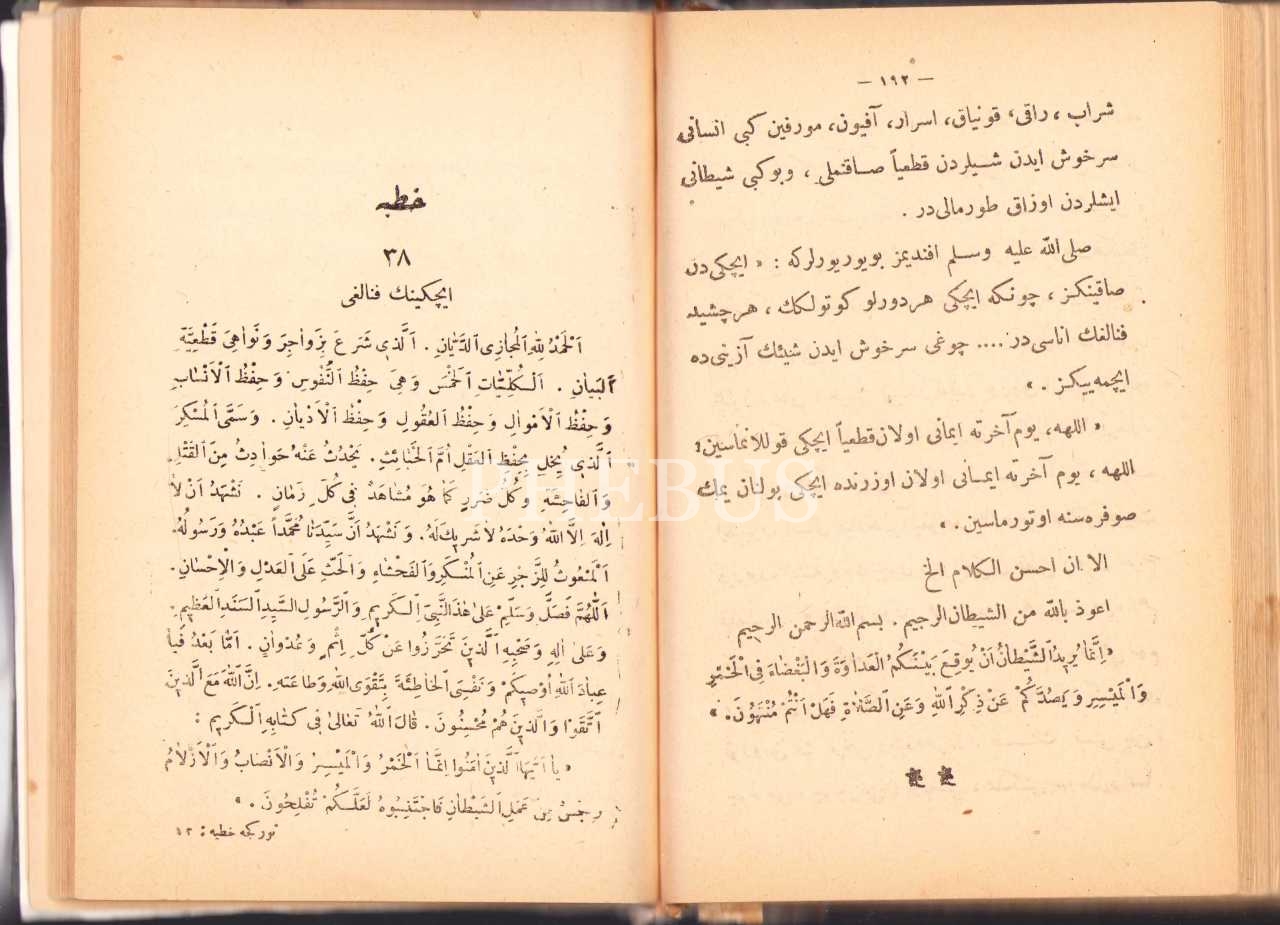 — ١٩٢ —
شراب ، راقی، قونیاق، اسرار، آفیون، مورفین کبی انسانی
سرخوش ایدن شـیلردن قطعیاً صـاقنملی ، وبوکبی شیطانی
ایشلردن اوزاق طورمالی‌در .
صلی الله علیه وسـلم افندیمز بویوریورلرکه : « ایچکی‌دن
صاقینکز ، چونکه ایچکی هردورلو کوتولکک ، هرچشید
فنالغک اناسی‌در .... چوغی سرخوش ایدن شیئك آزینی‌ده
ایچمه‌ییکز . »
« اللهه، یوم آخرته ایمانی اولان قطعیاً ایچکی قوللانماسین؛
اللهه ، یوم آخرته ایمـانی اولان اوزرنده ایچکی بولنان یمك
صوفره‌سنه اوتورماسین . »
الا ان احسن الكلام الخ
اعوذ بالله من الشيطان الرجيم . بسم الله الرحمن الرحيم
«اِنَّمَا يُرِيدُ الشَّيْطَانُ اَنْ يُوقِعَ بَيْنَكُمُ الْعَدَاوَةَ وَالْبَغْضَاءَ فِى الْخَمْرِ
وَالْمَيْسِرِ وَيَصُدَّكُمْ عَنْ ذِكْرِ اللهِ وَعَنِ الصَّلَاةِ فَهَلْ اَنْتُمْ مُنْتَهُونَ . »
خطبه
٣٨
ایچکینك فنالغی
اَلْحَمْدُ لِلّٰهِ الْمُجَازِى الدَّيَّانِ . اَلَّذِى شَرَعَ بِزَوَاجِرَ وَنَوَاهِىَ قَطْعِيَّةِ
الْبَيَانِ . اَلْكُلِّيَّاتِ الْخَمْسَ وَهِىَ حِفْظُ النُّفُوسِ وَحِفْظُ الْاَنْسَابِ
وَحِفْظُ الْاَمْوَالِ وَحِفْظُ الْعُقُولِ وَحِفْظُ الْاَدْيَانِ . وَسَمَّى الْمُسْكِرَ
الَّذِى يُخِلُّ بِحِفْظِ الْعَقْلِ اُمَّ الْخَبَائِثِ . يَحْدُثُ عَنْهُ حَوَادِثُ مِنَ الْقَتْلِ
وَالْفَاحِشَةِ وَكُلُّ ضَرَرٍ كَمَا هُوَ مُشَاهَدٌ فِى كُلِّ زَمَانٍ . نَشْهَدُ اَنْ لَا
اِلٰهَ اِلَّا اللهُ وَحْدَهُ لَا شَرِيكَ لَهُ. وَنَشْهَدُ اَنَّ سَيِّدَنَا مُحَمَّداً عَبْدُهُ وَرَسُولُهُ.
اَلْمَبْعُوثُ لِلزَّجْرِ عَنِ الْمُنْكَرِ وَالْفَحْشَاءِ وَالْحَثِّ عَلَى الْعَدْلِ وَالْاِحْسَانِ .
اَللّٰهُمَّ فَصَلِّ وَسَلِّمْ عَلَى هٰذَا النَّبِىِّ الْكَرِيمِ وَالرَّسُولِ السَّيِّدِ السَّنَدِ الْعَظِيمِ .
وَعَلَى اٰلِهِ وَصَحْبِهِ الَّذِينَ تَحَرَّزُوا عَنْ كُلِّ اِثْمٍ وَعُدْوَانٍ . اَمَّا بَعْدُ فَيَا
عِبَادَ اللهِ اُوصِيكُمْ وَنَفْسِىَ الْخَاطِئَةَ بِتَقْوَى اللهِ وَطَاعَتِهِ . اِنَّ اللهَ مَعَ الَّذِينَ
اتَّقَوْا وَالَّذِينَ هُمْ مُحْسِنُونَ . قَالَ اللهُ تَعَالَى فِى كِتَابِهِ الْكَرِيمِ :
« يَا اَيُّهَا الَّذِينَ اٰمَنُوا اِنَّمَا الْخَمْرُ وَالْمَيْسِرُ وَالْاَنْصَابُ وَالْاَزْلَامُ
رِجْسٌ مِنْ عَمَلِ الشَّيْطَانِ فَاجْتَنِبُوهُ لَعَلَّكُمْ تُفْلِحُونَ . »
تورکجه خطبه : ١٣
PHEBUS